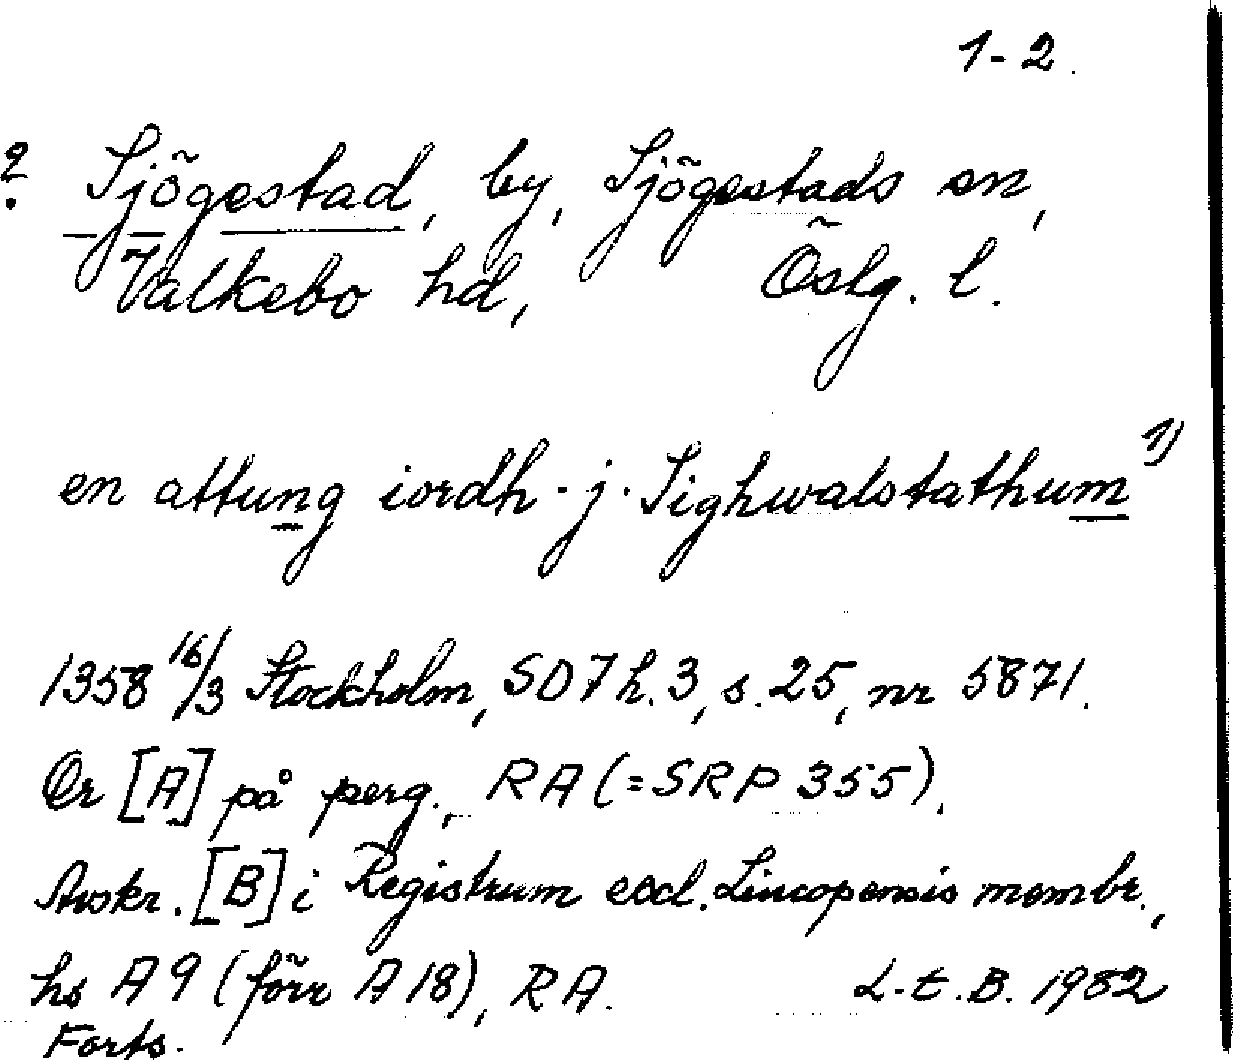 1-2.
? Sjögestad, by, Sjögestads sn,
Valkebo hd, Östg. l.
en attung iordh · j · Sighwalstathum 1)
1358 16/3 Stockholm, SD 7 h. 3, s. 25, nr 5871.
Or [A] på perg., RA (= SRP 355).
Avskr. [B] i Registrum eccl. Lincopensis membr.,
hs A 9 (förr A 18), RA. L.t.B. 1982
Forts.